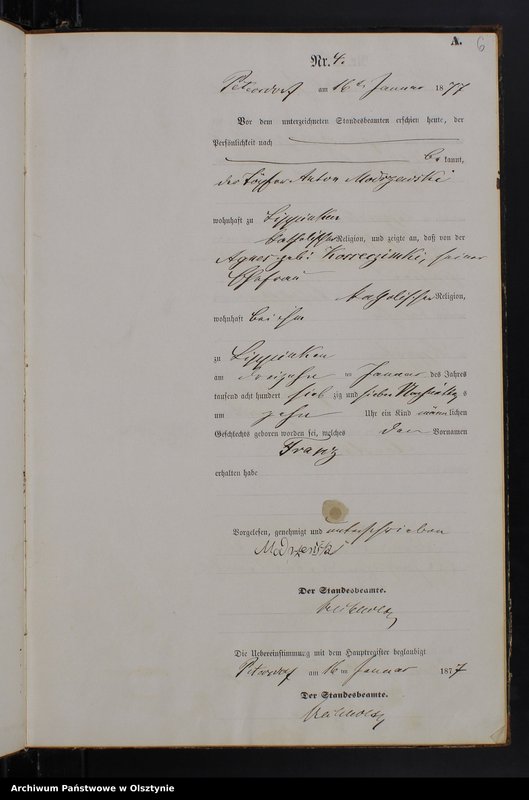 A.
6
Nr. 4.
Petersdorf am 16ten Januar 1877
Vor dem unterzeichneten Standesbeamten erschien heute, der
Persönlichkeit nach
be kannt,
der Töpfer Anton
wohnhaft zu Lippinken
katholischer Religion, und zeigte an, daß von der
Agnes geb. seiner
Ehefrau
katholischer Religion,
wohnhaft bei ihm
zu Lippinken
am dreizehn ten Januar des Jahres
tausend acht hundert sieb zig und sieben Nachmittags
um zehn Uhr ein Kind männlichen
Geschlechts geboren worden sei, welches den Vornamen
Franz
erhalten habe
Vorgelesen, genehmigt und unterschrieben
Der Standesbeamte.
Die Uebereinstimmung mit dem Hauptregister beglaubigt
Petersdorf am 16 ten Januar 1877
Der Standesbeamte.
Archiwum Państwowe w Olsztynie